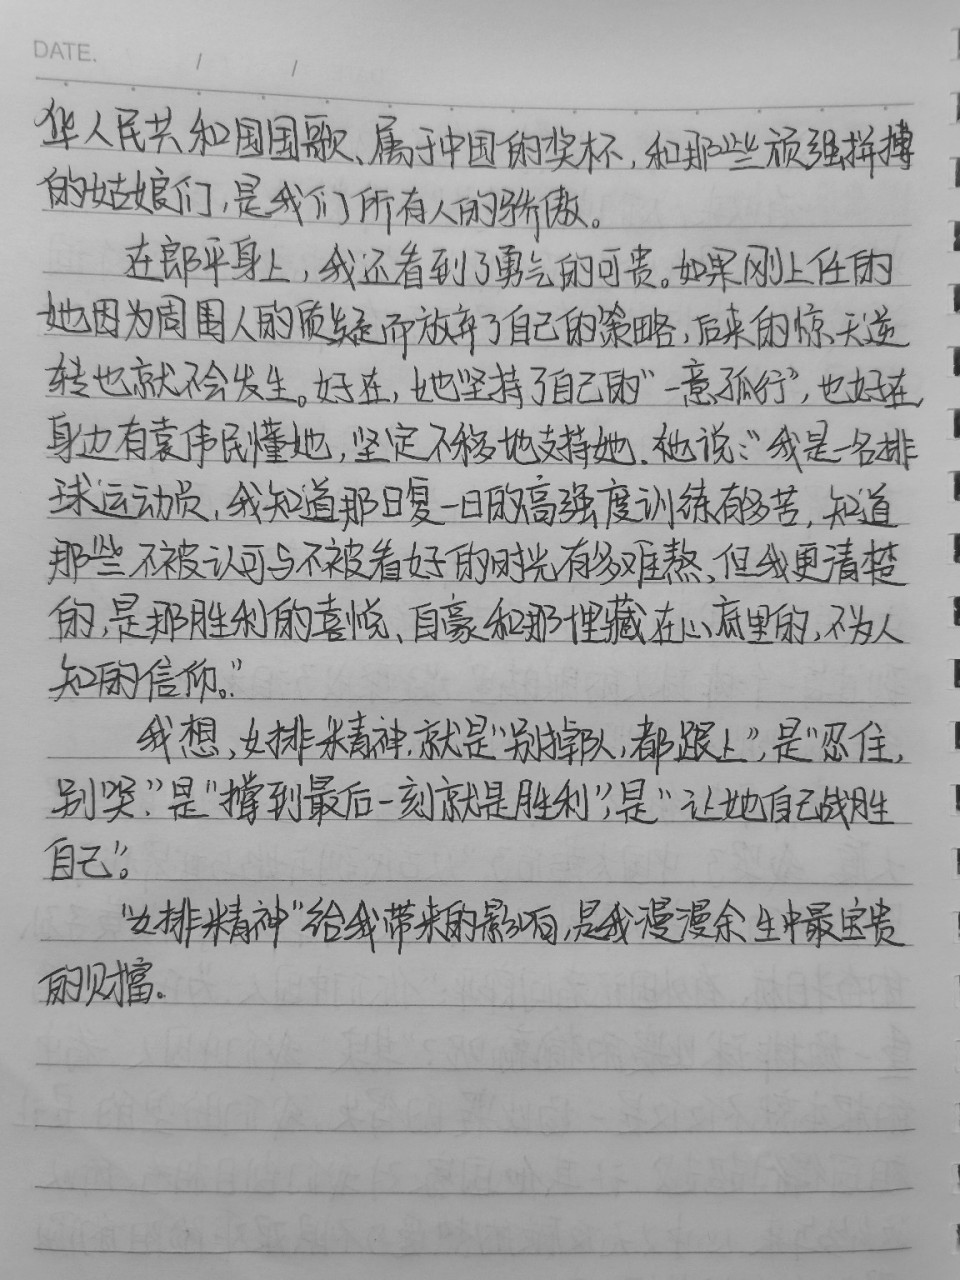 DATE. / /
华人民共和国国歌、属于中国的奖杯，和那些顽强拼搏
的姑娘们，是我们所有人的骄傲。
在郎平身上，我还看到了勇气的可贵。如果刚上任的
她因为周围人的质疑而放弃了自己的策略，后来的惊天逆
转也就不会发生。好在，她坚持了自己的“一意孤行”，也好在
身边有袁伟民懂她，坚定不移地支持她.他说：“我是一名排
球运动员，我知道那日复一日的高强度训练有多苦，知道
那些不被认可与不被看好的时光有多难熬、但我更清楚
的，是那胜利的喜悦、自豪和那埋藏在心底里的，不为人
知的信仰。”
我想，女排精神，就是“别掉队，都跟上”，是“忍住，
别哭”，是“撑到最后一刻就是胜利”，是“让她自己战胜
自己”。
“女排精神”给我带来的影响，是我漫漫余生中最宝贵
的财富.